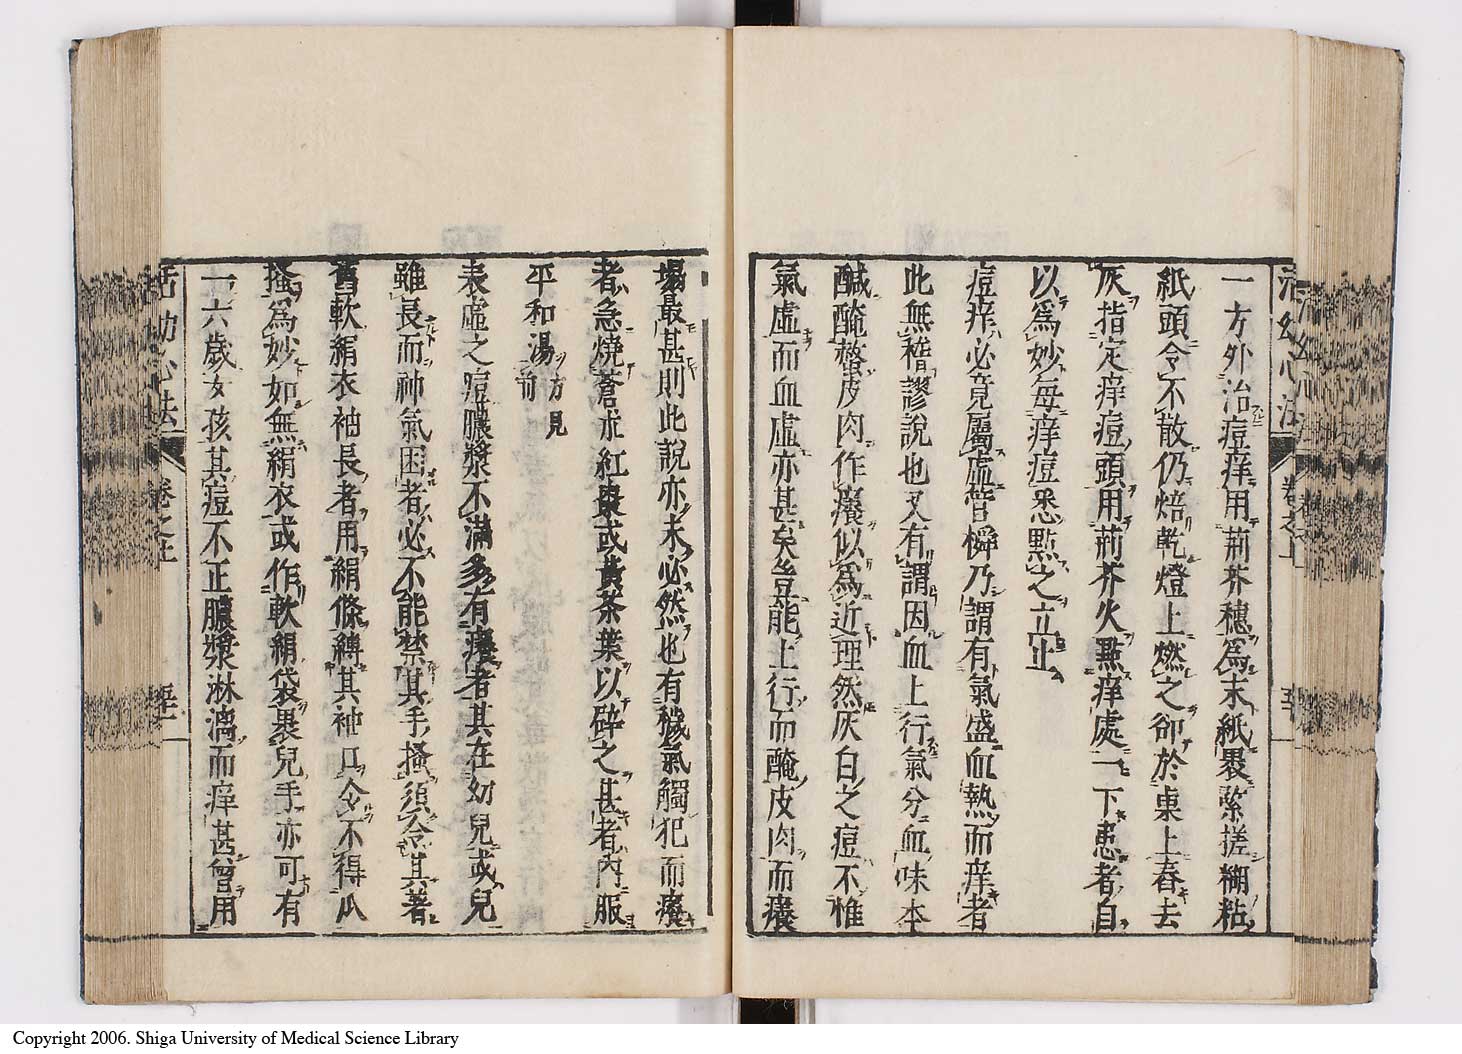 一方外治痘痒用荊芥穗爲末紙裹緊搓糊粘
紙頭令不散仍焙乾燈上燃之卻於桌上舂去
灰指定痒痘頭用荊芥火點痒處一下患者自
以爲妙每痒痘悉點之立止
痘痒必竟屬虛昔櫲乃謂有氣盛血熱而痒者
此無稽謬說也又有謂因血上行氣分血味本
鹹醃螫皮肉作癢似爲近理然灰白之痘不惟
氣虛而血虛亦甚矣豈能上行而醃皮肉而癢
塌最甚則此說亦未必然也有穢氣觸犯而癢
者急燒蒼朮紅棗或黃茶葉以碎之甚者內服
平和湯方見前
表虛之痘膿漿不滿多有癢者其在幼兒或兒
雖長而神氣困者必不能禁其手搔須令其著
舊軟絹衣袖長者用絹條縛其袖口令不得爪
搔爲妙如無絹衣或作軟絹袋裹兒手亦可有
一六歲女孩其痘不正膿漿淋漓而痒甚曾用
活幼心法
卷之上
Copyright 2006. Shiga University of Medical Science Library